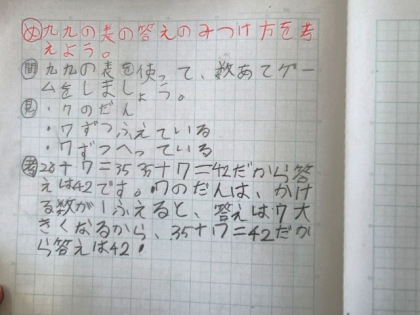 め 九九の表の答えのみつけ方を考
えよう。
問 九九の表を使って、数あてゲー
ムをしましょう。
見 ・7のだん
・7ずつふえている
・7ずつへっている
考 28+7=35 35+7=42だから答
えは42です。7のだんは、かけ
る数が1ふえると、答えは7大
きくなるから、35+7=42だか
ら答えは42!